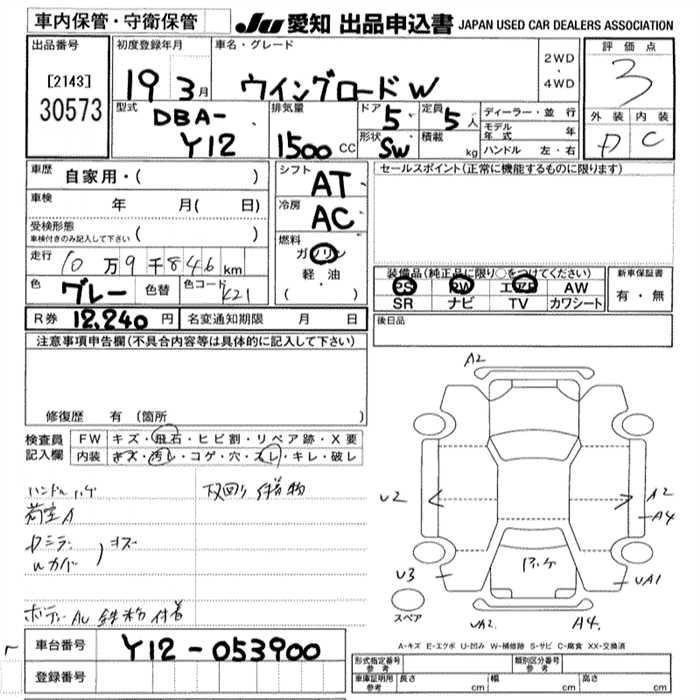 車内保管・守衛保管
JU 愛知 出品申込書 JAPAN USED CAR DEALERS ASSOCIATION
出品番号
[2143]
30573
初度登録年月
19 3月
車名・グレード
ウイングロード W
2WD
・
4WD
評価点
3
外装 内装
D C
型式
DBA-
Y12
排気量
1500 CC
ドア 5
形状 SW
定員 5人
積載 kg
ディーラー・並行
モデル年式 年
ハンドル 左・右
車歴 自家用・( )
車検 年 月( 日)
受検形態
車検付きのみ記入して下さい ( )
走行 10万9千846km
色 グレー 色替 色コード K21
シフト
AT
冷房
AC
燃料
ガソリン
軽・油
( )
セールスポイント(正常に機能するものに限ります)
装備品(純正品に限り○をつけてください)
PS PW エアB AW
SR ナビ TV カワシート
新車保証書
有・無
R券 12,240円 名変通知期限 月 日
後日品
注意事項申告欄(不具合内容等は具体的に記入して下さい)
修復歴 有 (箇所 )
検査員
記入欄
FW キズ・飛石・ヒビ割・リペア跡・X要
内装 キズ・汚レ・コゲ・穴・スレ・キレ・破レ
ハンドル ハゲ
荷室A
Dミラー
Wカバー
キズ
付着物
ボディーAU 鉄粉 付着
A2
U2
A2
A4
U3
UA1
UA2
A4
スペア
A-キズ E-エクボ U-凹み W-補修跡 S-サビ C-腐食 XX-交換済
車台番号 Y12-053900
登録番号
型式指定番号 参考
類別区分番号 参考
車庫証明用 参考 長さ cm 幅 cm 高さ cm